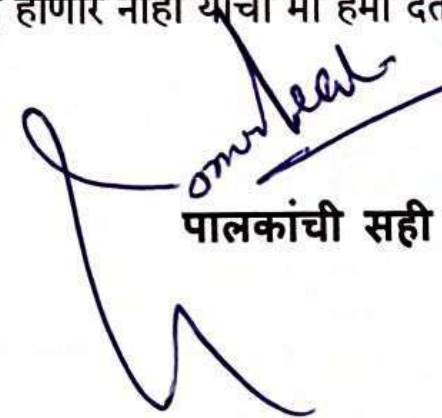 होणार नाही याची मी हमी देत
पालकांची सही